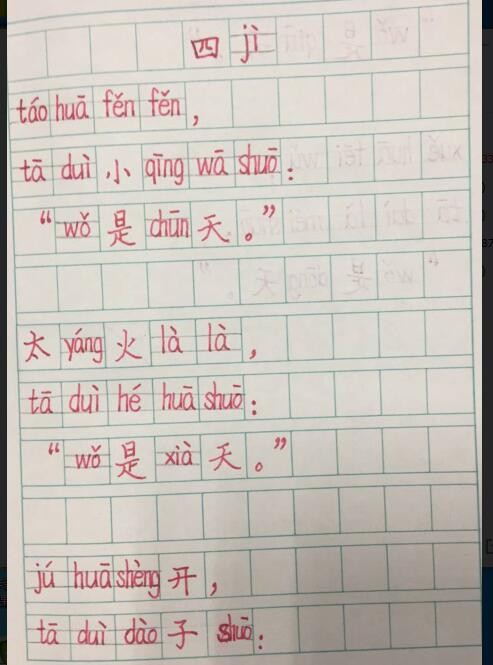 四 jì
táo huā fěn fěn，
tā duì 小 qīng wā shuō：
“wǒ 是 chūn 天。”
太 yáng 火 là là，
tā duì hé huā shuō：
“wǒ 是 xià 天。”
jú huā shèng 开，
tā duì dào 子 shuō：